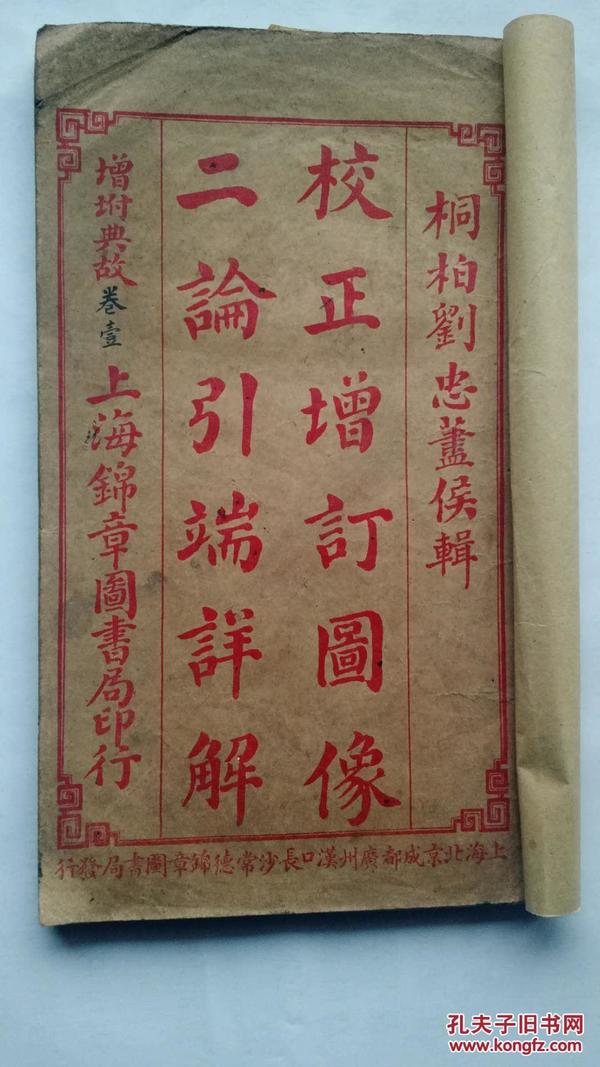 桐柏劉忠藎侯輯
校正增訂圖像
二論引端詳解
增坿典故
卷壹
上海錦章圖書局印行
上海北京成都廣州漢口長沙常德錦章圖書局發行
孔夫子旧书网
www.kongfz.com